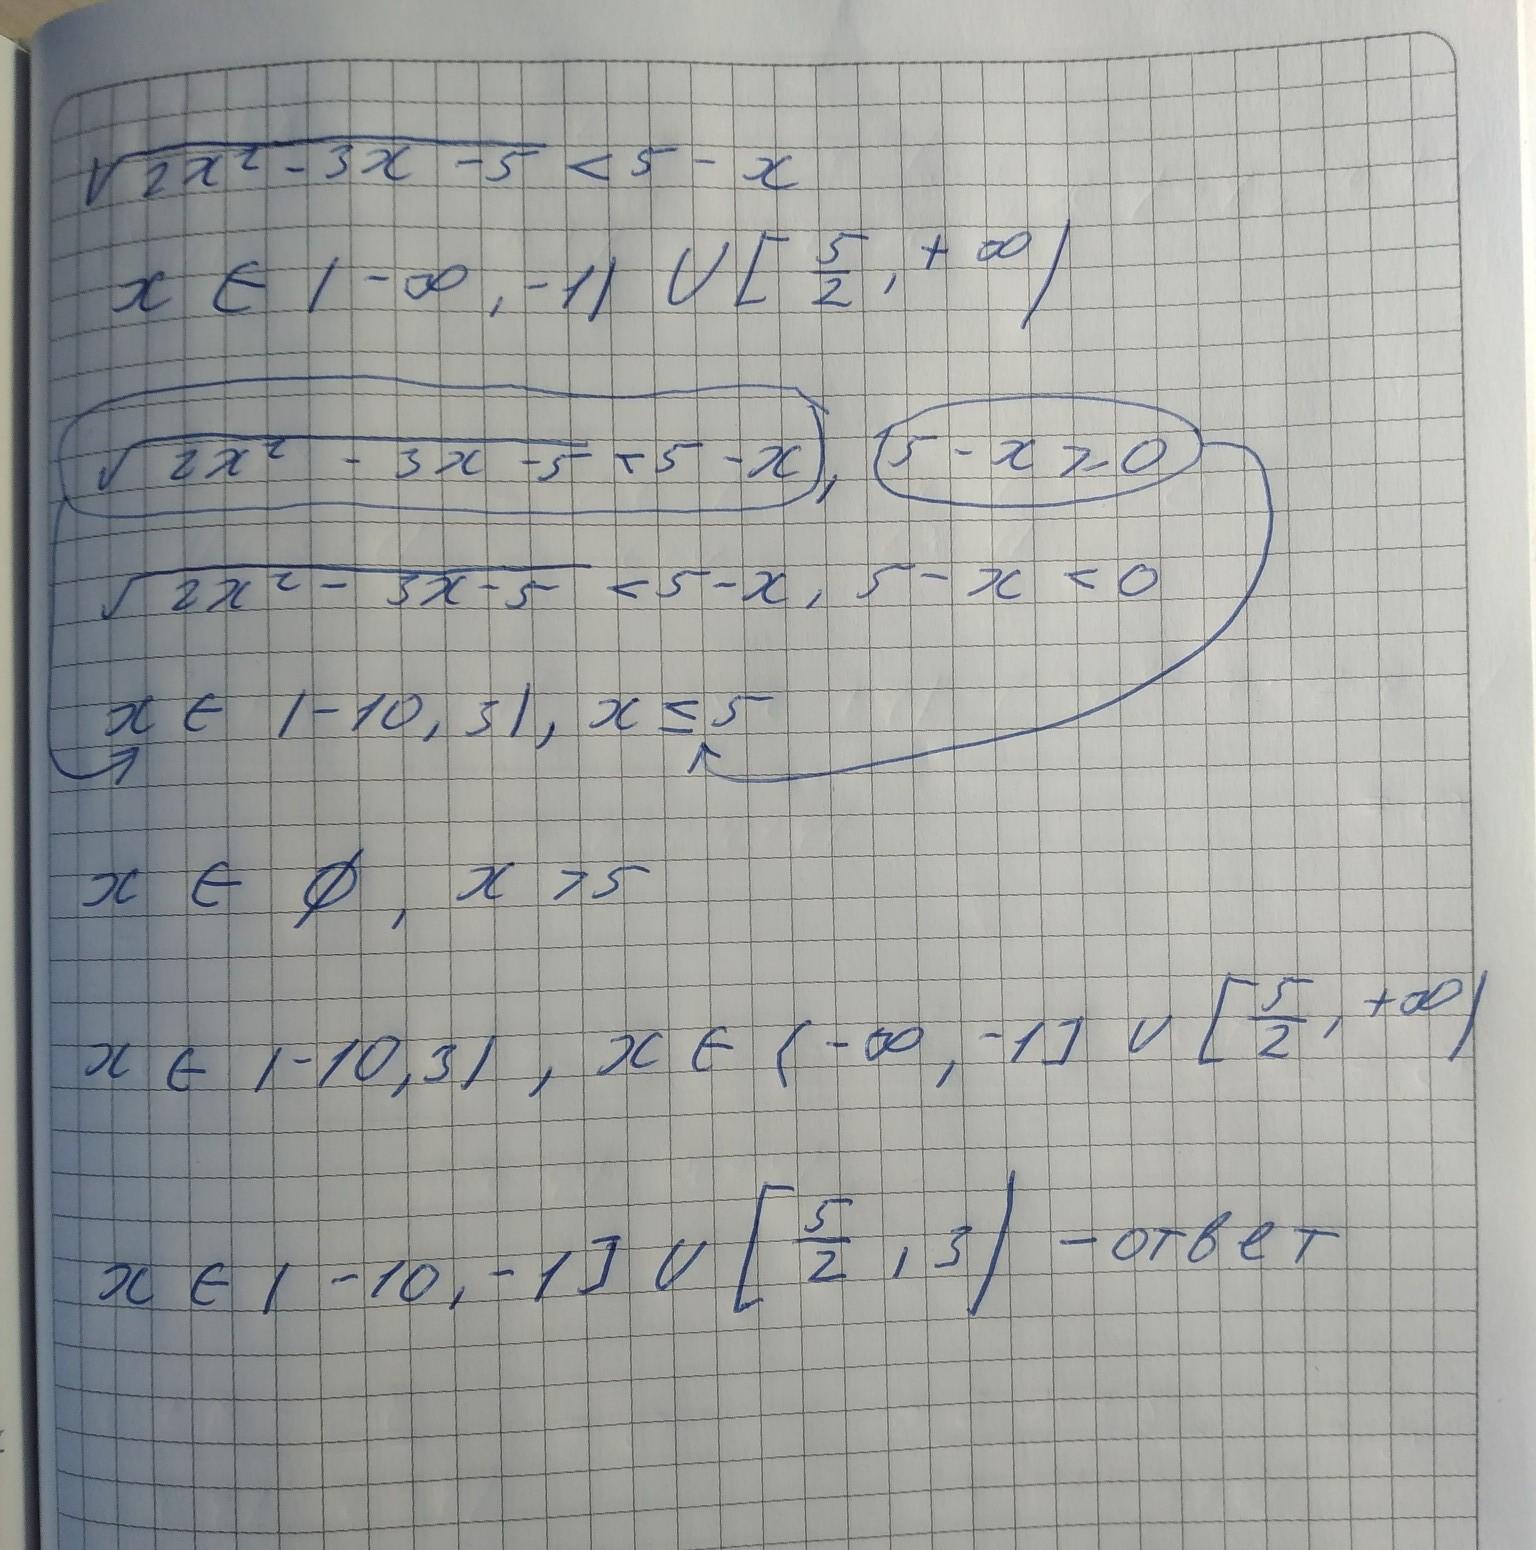 √(2x² - 3x - 5) < 5 - x
x ∈ (-∞, -1) ∪ [5/2, +∞)
√(2x² - 3x - 5) < 5 - x, 5 - x ≥ 0
√(2x² - 3x - 5) < 5 - x, 5 - x < 0
x ∈ (-10, 3), x ≤ 5
x ∈ ∅, x > 5
x ∈ (-10, 3), x ∈ (-∞, -1] ∪ [5/2, +∞)
x ∈ (-10, -1] ∪ [5/2, 3) - ответ